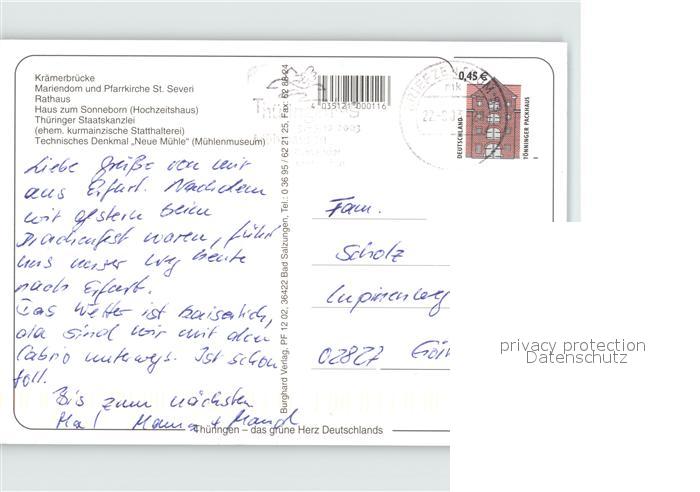 Krämerbrücke
Mariendom und Pfarrkirche St. Severi
Rathaus
Haus zum Sonneborn (Hochzeitshaus)
Thüringer Staatskanzlei
(ehem. kurmainzische Statthalterei)
Technisches Denkmal „Neue Mühle“ (Mühlenmuseum)
Liebe Grüße von mir
aus Erfurt. Nachdem
wir gestern beim
Drachenfest waren, führt
uns unser Weg heute
nach Erfurt.
Das Wetter ist kaiserlich,
da sind wir mit dem
Cabrio unterwegs. Ist schon
toll.
Bis zum nächsten
Mal Mama +
Burghard Verlag, PF 12 02, 36422 Bad Salzungen, Tel.: 0 36 95 / 62 21 25, Fax: 62 88 24
4 035121 000116
0,45 €
DEUTSCHLAND
TÖNNINGER PACKHAUS
Fam.
Scholz
Lupinenweg
02827
privacy protection
Datenschutz
Thüringen – das grüne Herz Deutschlands